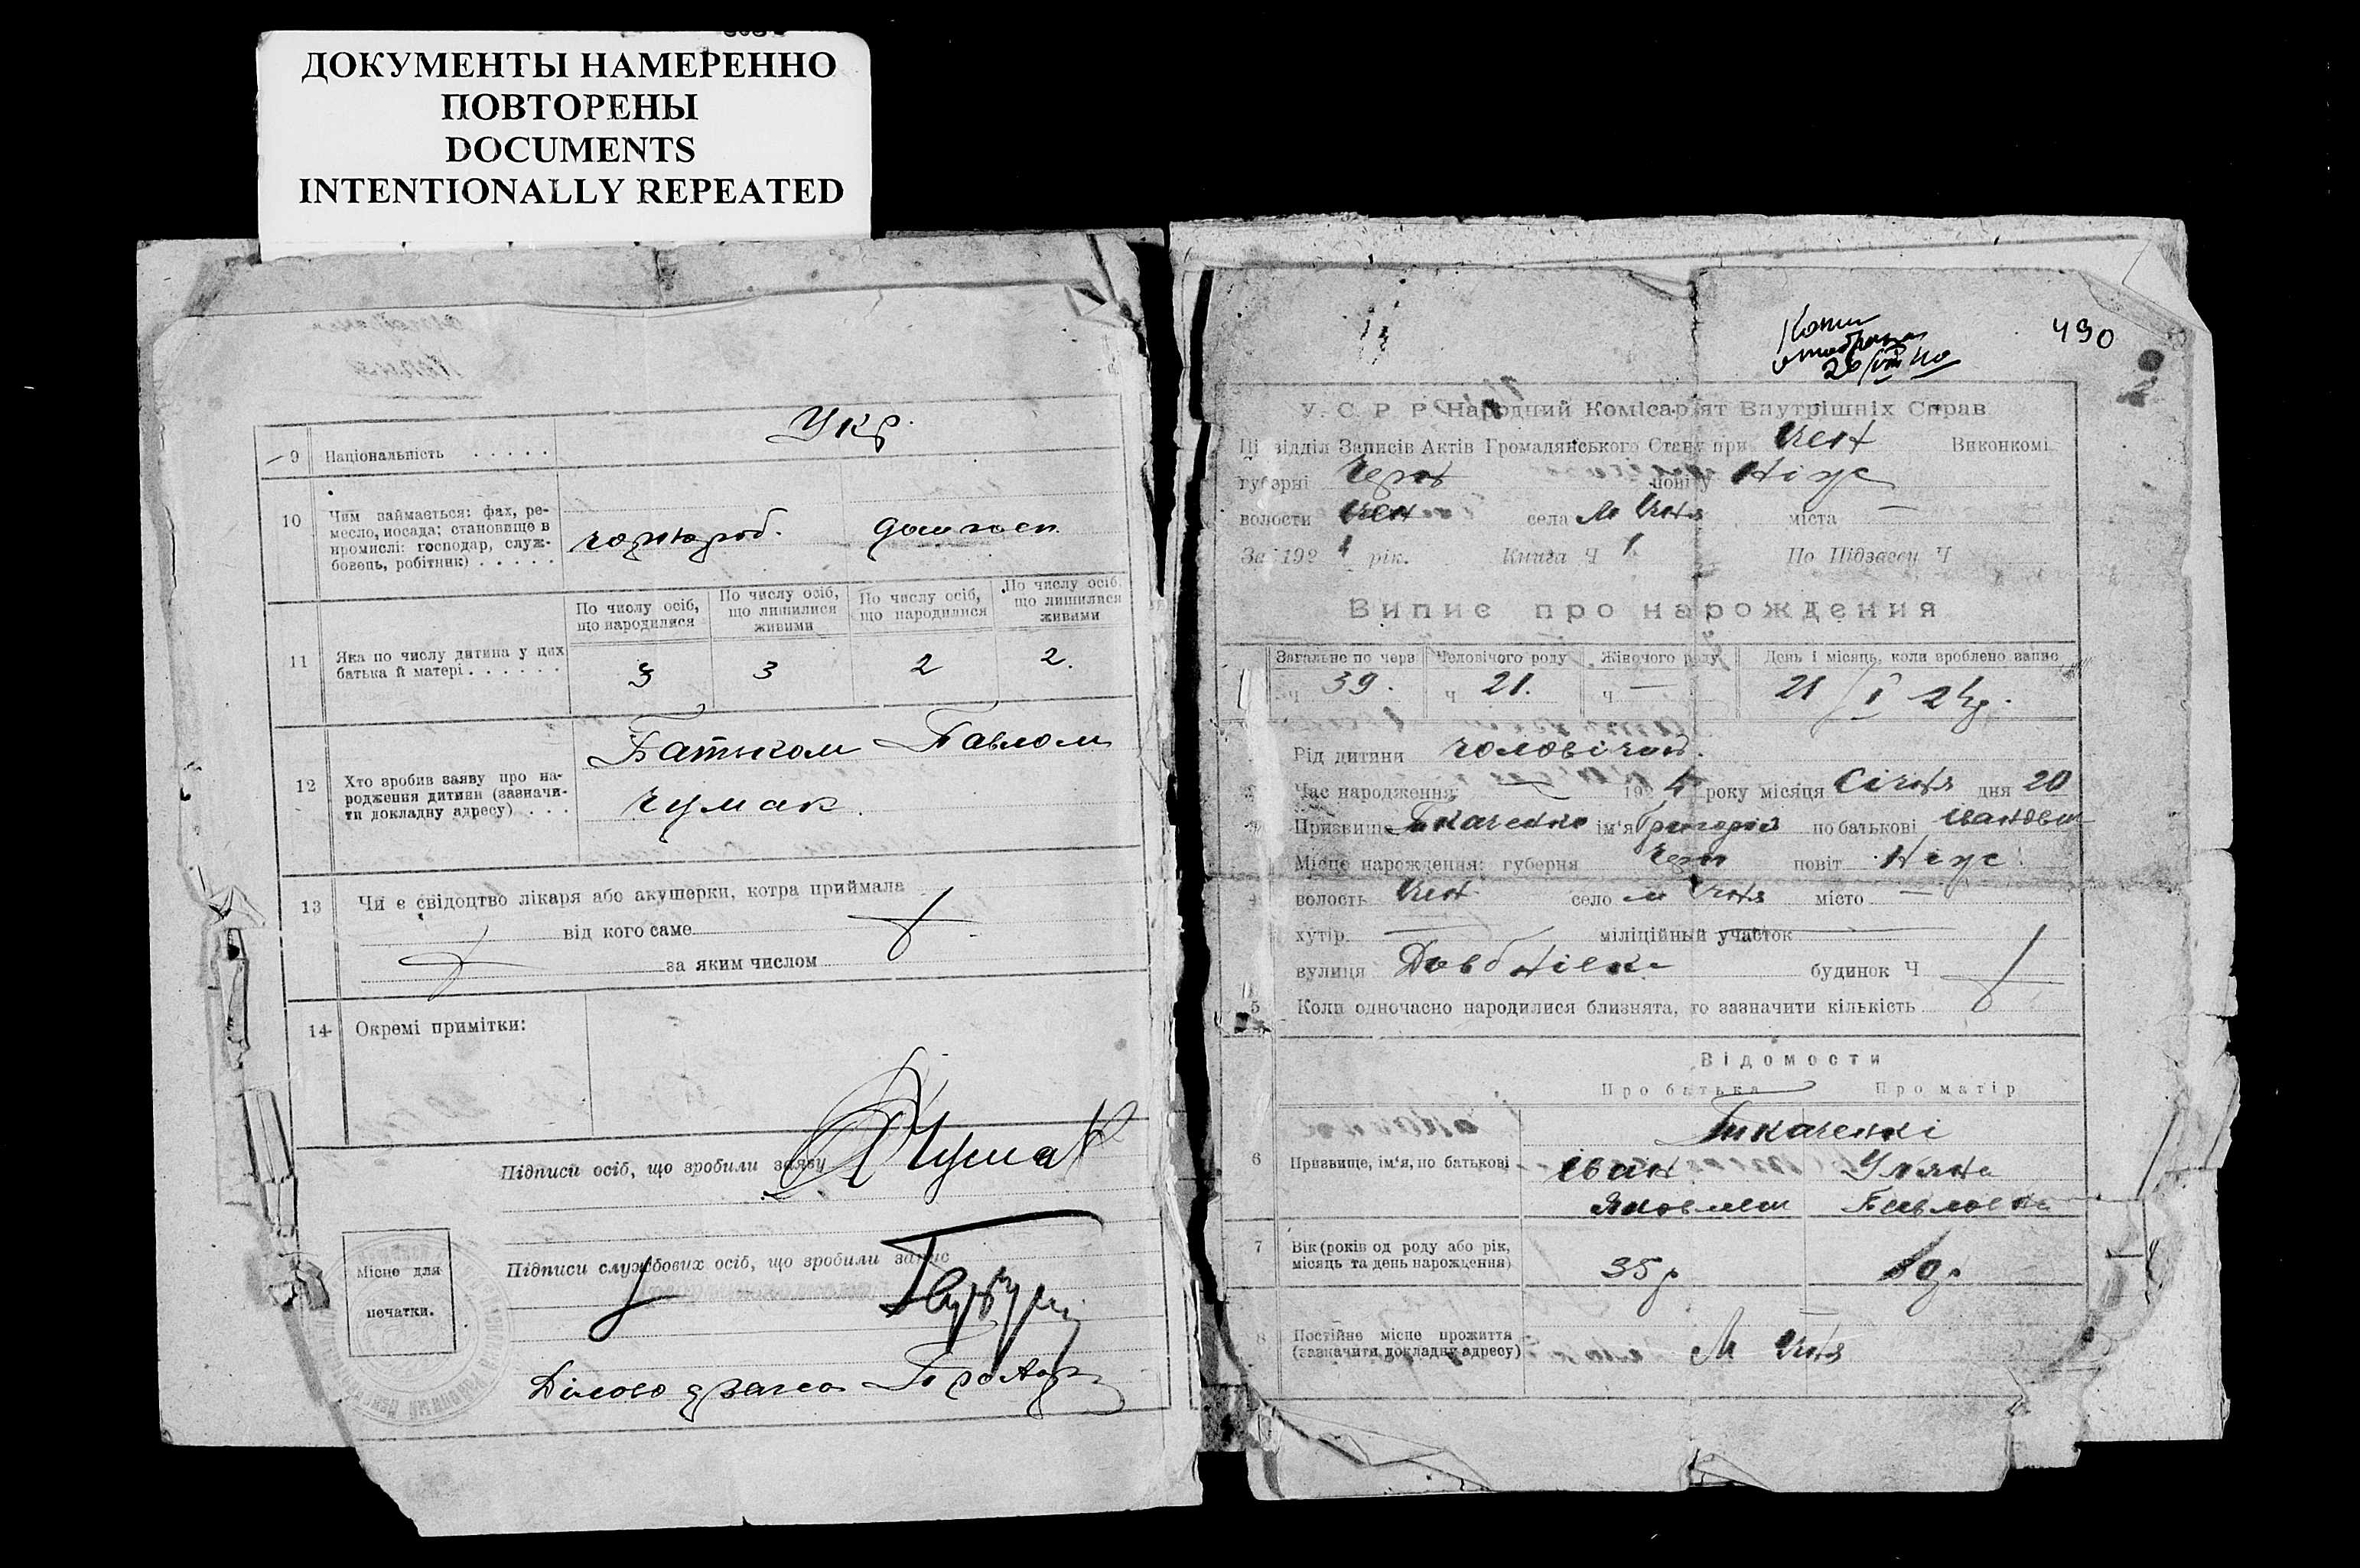 ДОКУМЕНТЫ НАМЕРЕННО
ПОВТОРЕНЫ
DOCUMENTS
INTENTIONALLY REPEATED
Укр.
9 Національність . . . . .
10 Чим займається: фах, ре-
месло, посада; становище в
промислі: господар, служ-
бовець, робітник) . . . . .
чорнороб. домгосп.
По числу осіб, що народилися
По числу осіб, що лишилися живими
По числу осіб, що народилися
По числу осіб, що лишилися живими
11 Яка по числу дитина у цих
батька й матері . . . . . .
3 3 2 2.
12 Хто зробив заяву про на-
родження дитини (зазначи-
ти докладну адресу) . . .
Батьком Павлом
Чумак.
13 Чи є свідоцтво лікаря або акушерки, котра приймала
від кого саме
за яким числом
14 Окремі примітки:
Підписи осіб, що зробили заяву Чумак
Підписи службових осіб, що зробили запис
Місце для
печатки.
490
Копии
26/VIII 40
У. С. Р. Р. Народний Комісарʼят Внутрішніх Справ
відділ Записів Актів Громадянського Стану при Ичен Виконкомі
губерні Черн повіту Ніж
волости Ичен села М Ичня міста —
За 1924 рік. Книга Ч 1 По Підзагсу Ч
Випис про нарождения
Загальне по черв Человічого роду Жіночого роду День і місяць, коли зроблено запис
ч 39. ч 21. ч — 21/I 24р.
Рід дитини чоловічий.
Час народження: 1924 року місяця Січня дня 20
Призвище Ткаченко імʼя Григорій по батькові Іванович
Місце нарождения: губерня Черн повіт Ніж
волость Ичен село м Ичня місто —
хутір — міліційный участок —
вулиця будинок Ч
5 Коли одночасно народилися близнята, то зазначити кількість
Відомости
Про батька Про матір
Ткаченкі
6 Призвище, імʼя, по батькові Іван Уляна
Яковлевич Павловна
7 Вік (років од роду або рік,
місяць та день нарождения) 35р
8 Постійне місце прожиття
(зазначити докладну адресу) М Ичня